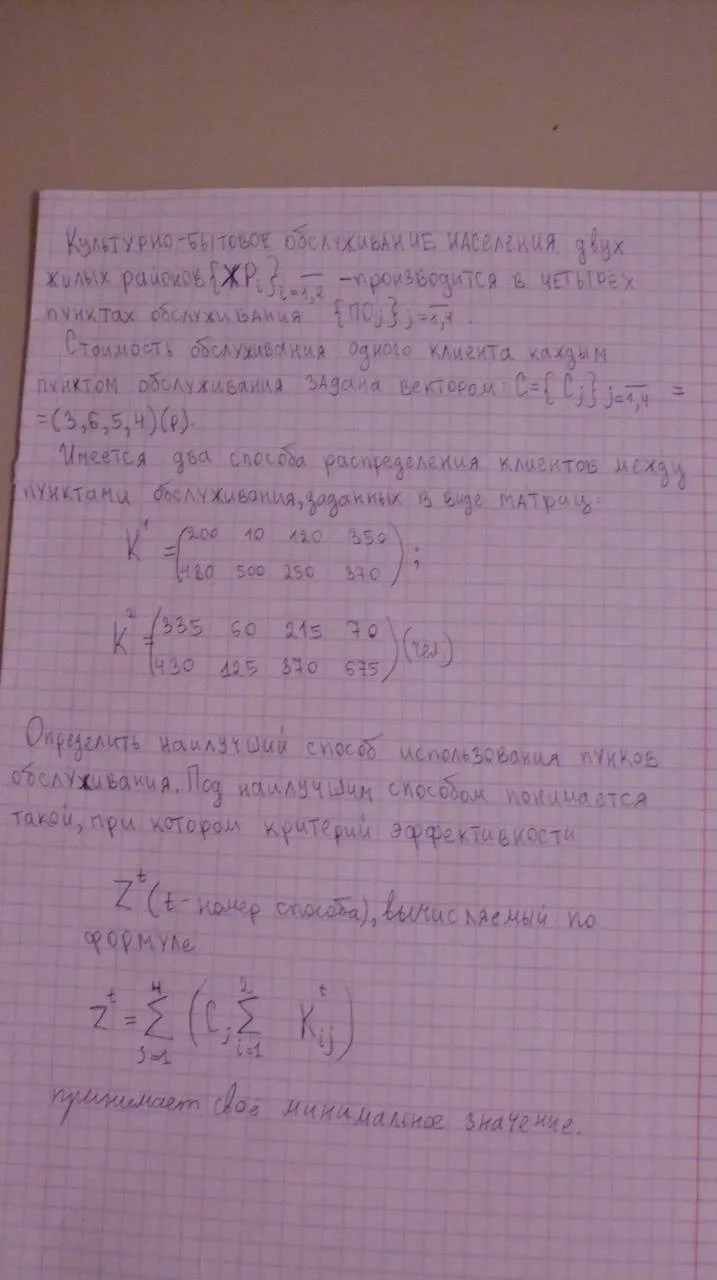 Культурно-бытовое обслуживание населения двух
жилых районов {ЖРi}i=1,2 – производится в четырёх
пунктах обслуживания {ПОj}j=1,4.
Стоимость обслуживания одного клиента каждым
пунктом обслуживания задана вектором: C={Cj}j=1,4 =
=(3,6,5,4)(р).
Имеется два способа распределения клиентов между
пунктами обслуживания, заданных в виде матриц:
K¹ = (200 10 120 350
480 500 250 370);
K² = (335 60 215 70
430 125 370 675) (чел.)
Определить наилучший способ использования пунков
обслуживания. Под наилучшим способом понимается
такой, при котором критерий эффективности
Zᵗ (t - номер способа), вычисляемый по
формуле
Zᵗ = ∑⁴j=1 (Cj ∑²i=1 Kᵗij)
принимает своё минимальное значение.